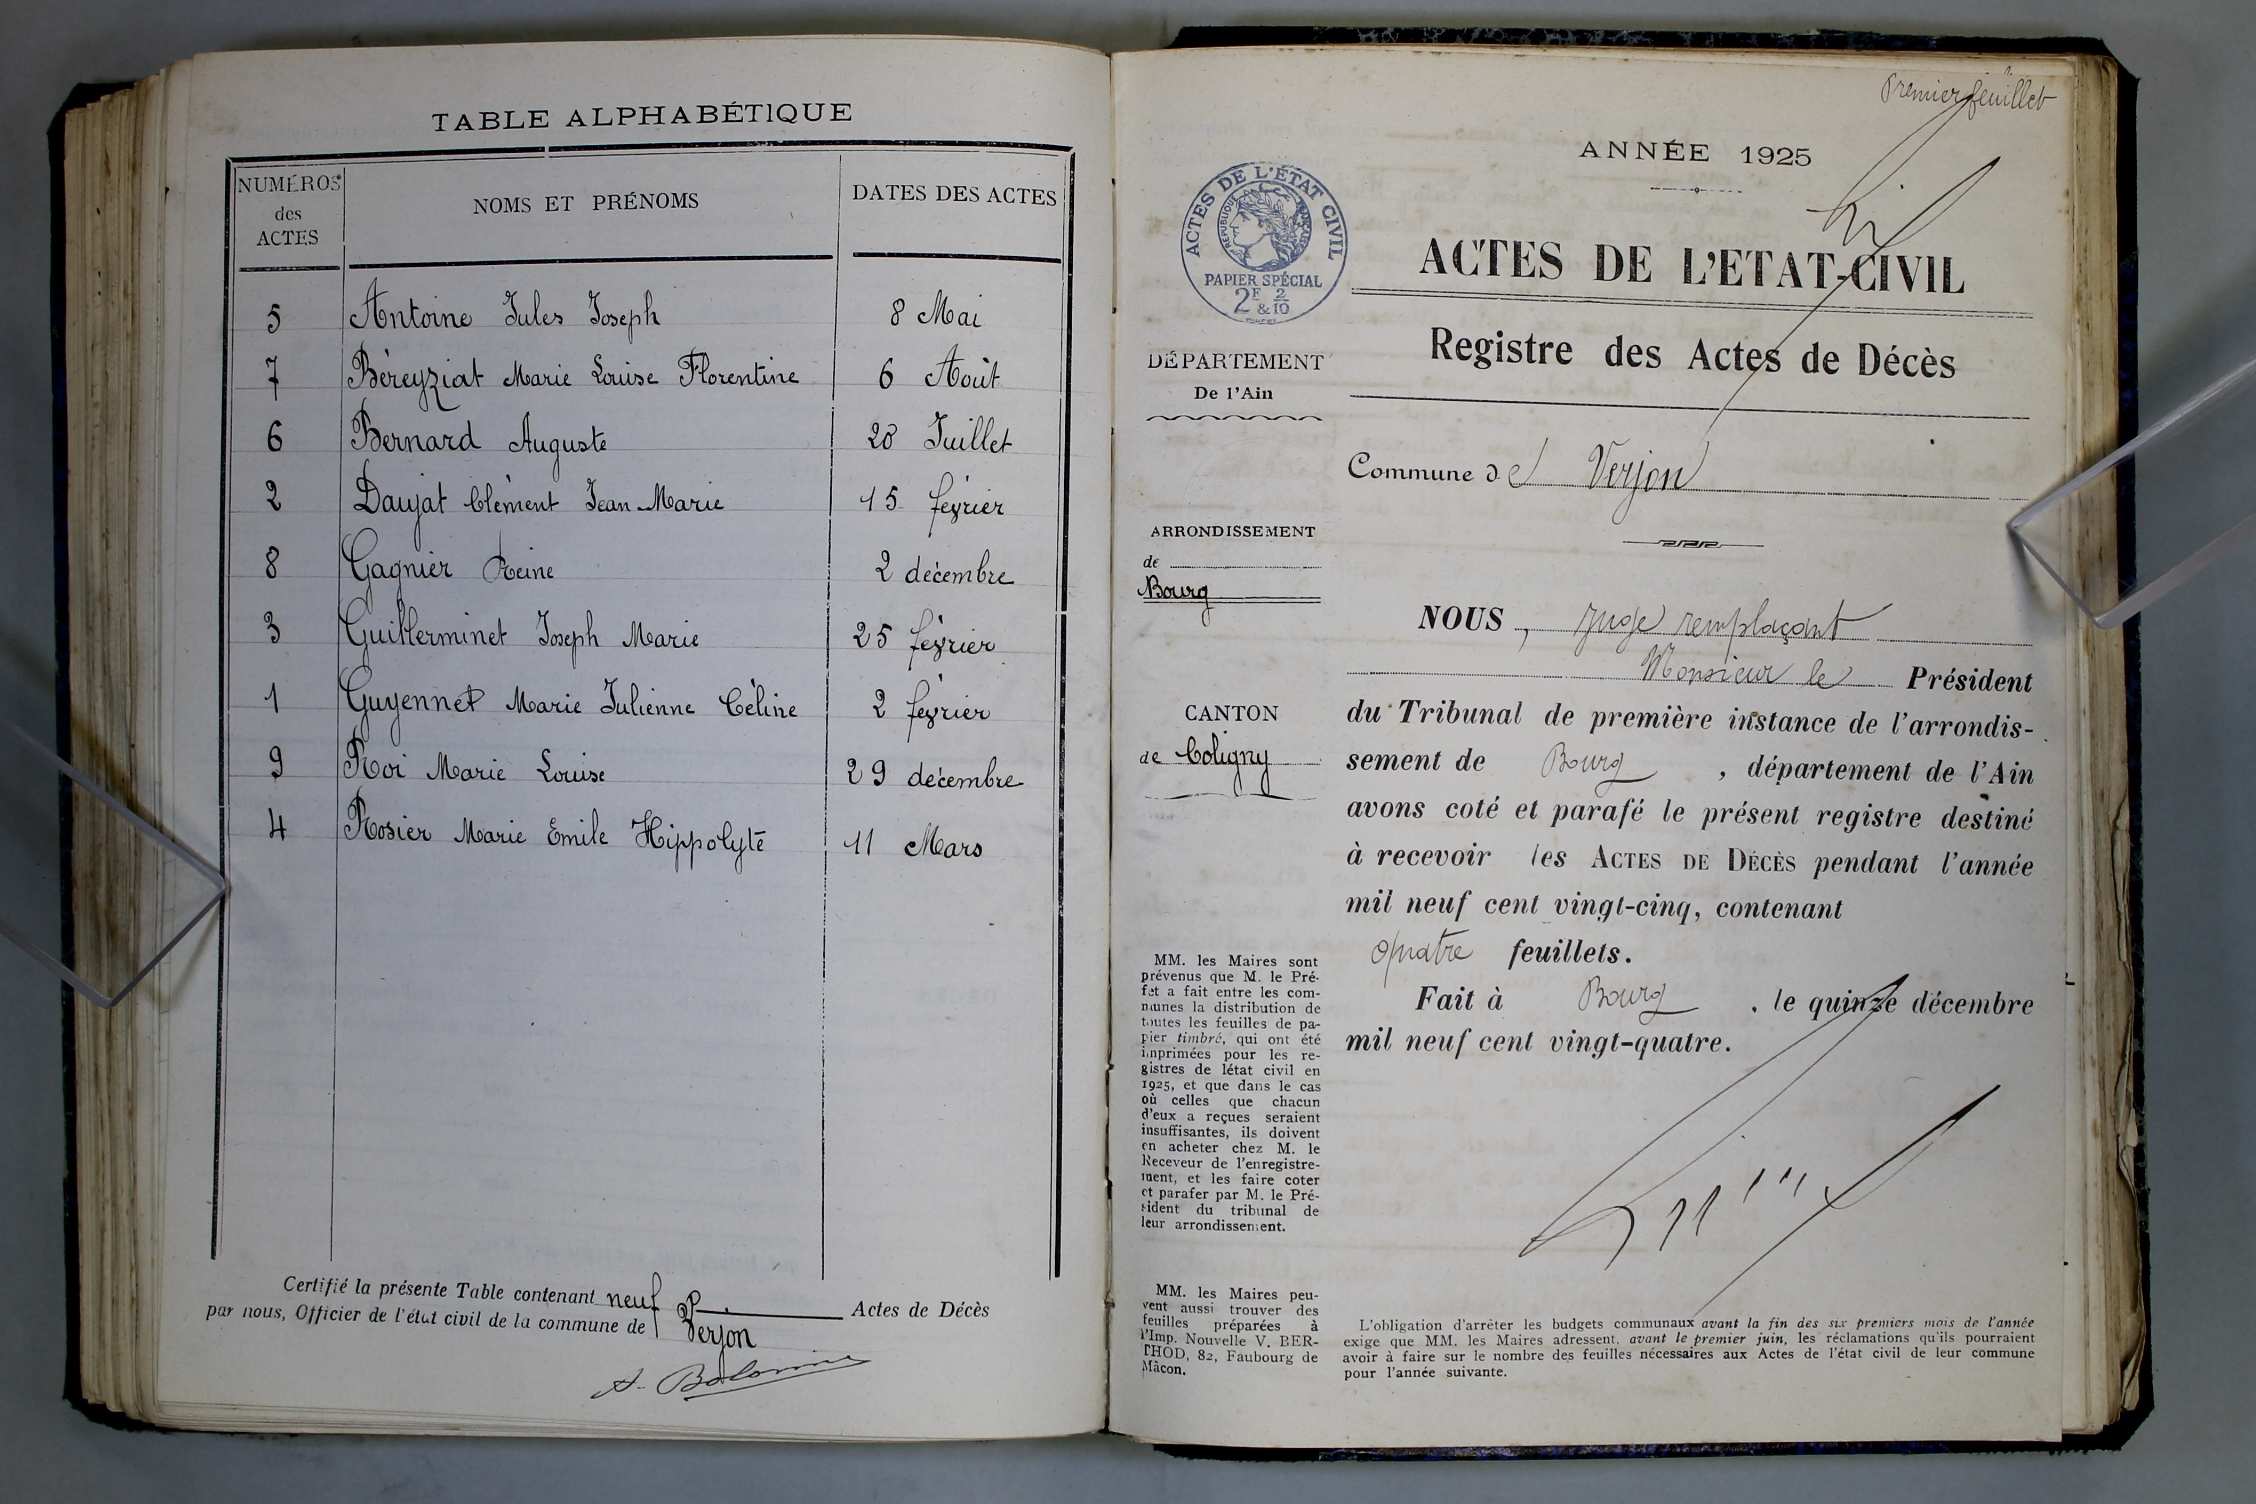 TABLE ALPHABÉTIQUE
NUMÉROS des ACTES
NOMS ET PRÉNOMS
DATES DES ACTES
5 Antoine Jules Joseph 8 Mai
7 Béreyziat Marie Louise Florentine 6 Août
6 Bernard Auguste 20 Juillet
2 Daujat Clément Jean-Marie 15 février
8 Gagnier Reine 2 décembre
3 Guillerminet Joseph Marie 25 février
1 Guyennet Marie Julienne Céline 2 février
9 Roi Marie Louise 29 décembre
4 Rosier Marie Emile Hippolyte 11 Mars
Certifié la présente Table contenant neuf Actes de Décès
par nous, Officier de l'état civil de la commune de Verjon
Premier feuillet
ANNÉE 1925
ACTES DE L'ÉTAT CIVIL
RÉPUBLIQUE FRANÇAISE
PAPIER SPÉCIAL
2F & 2/10
ACTES DE L'ETAT-CIVIL
Registre des Actes de Décès
DÉPARTEMENT
De l'Ain
Commune de Verjon
ARRONDISSEMENT
de
Bourg
CANTON
de Coligny
NOUS, Juge remplaçant
Monsieur le Président
du Tribunal de première instance de l'arrondis-
sement de Bourg, département de l'Ain
avons coté et parafé le présent registre destiné
à recevoir les ACTES DE DÉCÈS pendant l'année
mil neuf cent vingt-cinq, contenant
quatre feuillets.
Fait à Bourg, le quinze décembre
mil neuf cent vingt-quatre.
MM. les Maires sont
prévenus que M. le Pré-
fet a fait entre les com-
munes la distribution de
toutes les feuilles de pa-
pier timbré, qui ont été
imprimées pour les re-
gistres de létat civil en
1925, et que dans le cas
où celles que chacun
d'eux a reçues seraient
insuffisantes, ils doivent
en acheter chez M. le
Receveur de l'enregistre-
ment, et les faire coter
et parafer par M. le Pré-
sident du tribunal de
leur arrondissement.
MM. les Maires peu-
vent aussi trouver des
feuilles préparées à
l'Imp. Nouvelle V. BER-
THOD, 82, Faubourg de
Mâcon.
L'obligation d'arrêter les budgets communaux avant la fin des six premiers mois de l'année
exige que MM. les Maires adressent, avant le premier juin, les réclamations qu'ils pourraient
avoir à faire sur le nombre des feuilles nécessaires aux Actes de l'état civil de leur commune
pour l'année suivante.